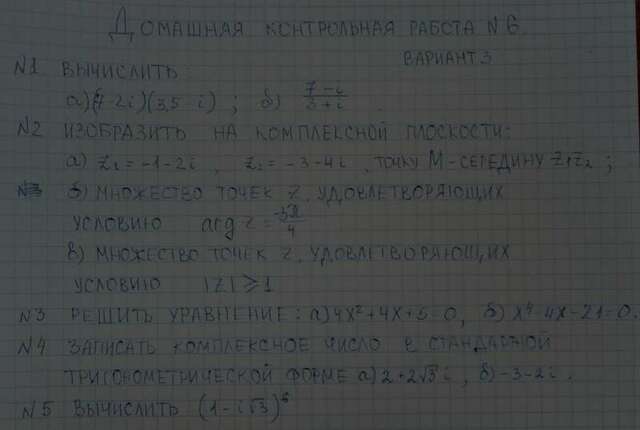 ДОМАШНАЯ КОНТРОЛЬНАЯ РАБОТА N 6
ВАРИАНТ 3
N1 ВЫЧИСЛИТЬ
а) (7-2i)(3,5-i) ; б) 7-i / 3+i
N2 ИЗОБРАЗИТЬ НА КОМПЛЕКСНОЙ ПЛОСКОСТИ:
а) Z₁=-1-2i , Z₂=-3-4i , ТОЧКУ М-СЕРЕДИНУ Z₁Z₂ ;
б) МНОЖЕСТВО ТОЧЕК Z, УДОВЛЕТВОРЯЮЩИХ
УСЛОВИЮ arg z = -3π/4
в) МНОЖЕСТВО ТОЧЕК Z, УДОВЛЕТВОРЯЮЩИХ
УСЛОВИЮ |Z|⩾1
N3 РЕШИТЬ УРАВНЕНИЕ: а) 4X²+4X+5=0, б) X⁴-4X-21=0.
N4 ЗАПИСАТЬ КОМПЛЕКСНОЕ ЧИСЛО В СТАНДАРТНОЙ
ТРИГОНОМЕТРИЧЕСКОЙ ФОРМЕ а) 2+2√3i , б) -3-2i .
N5 ВЫЧИСЛИТЬ (1-i√3)⁶